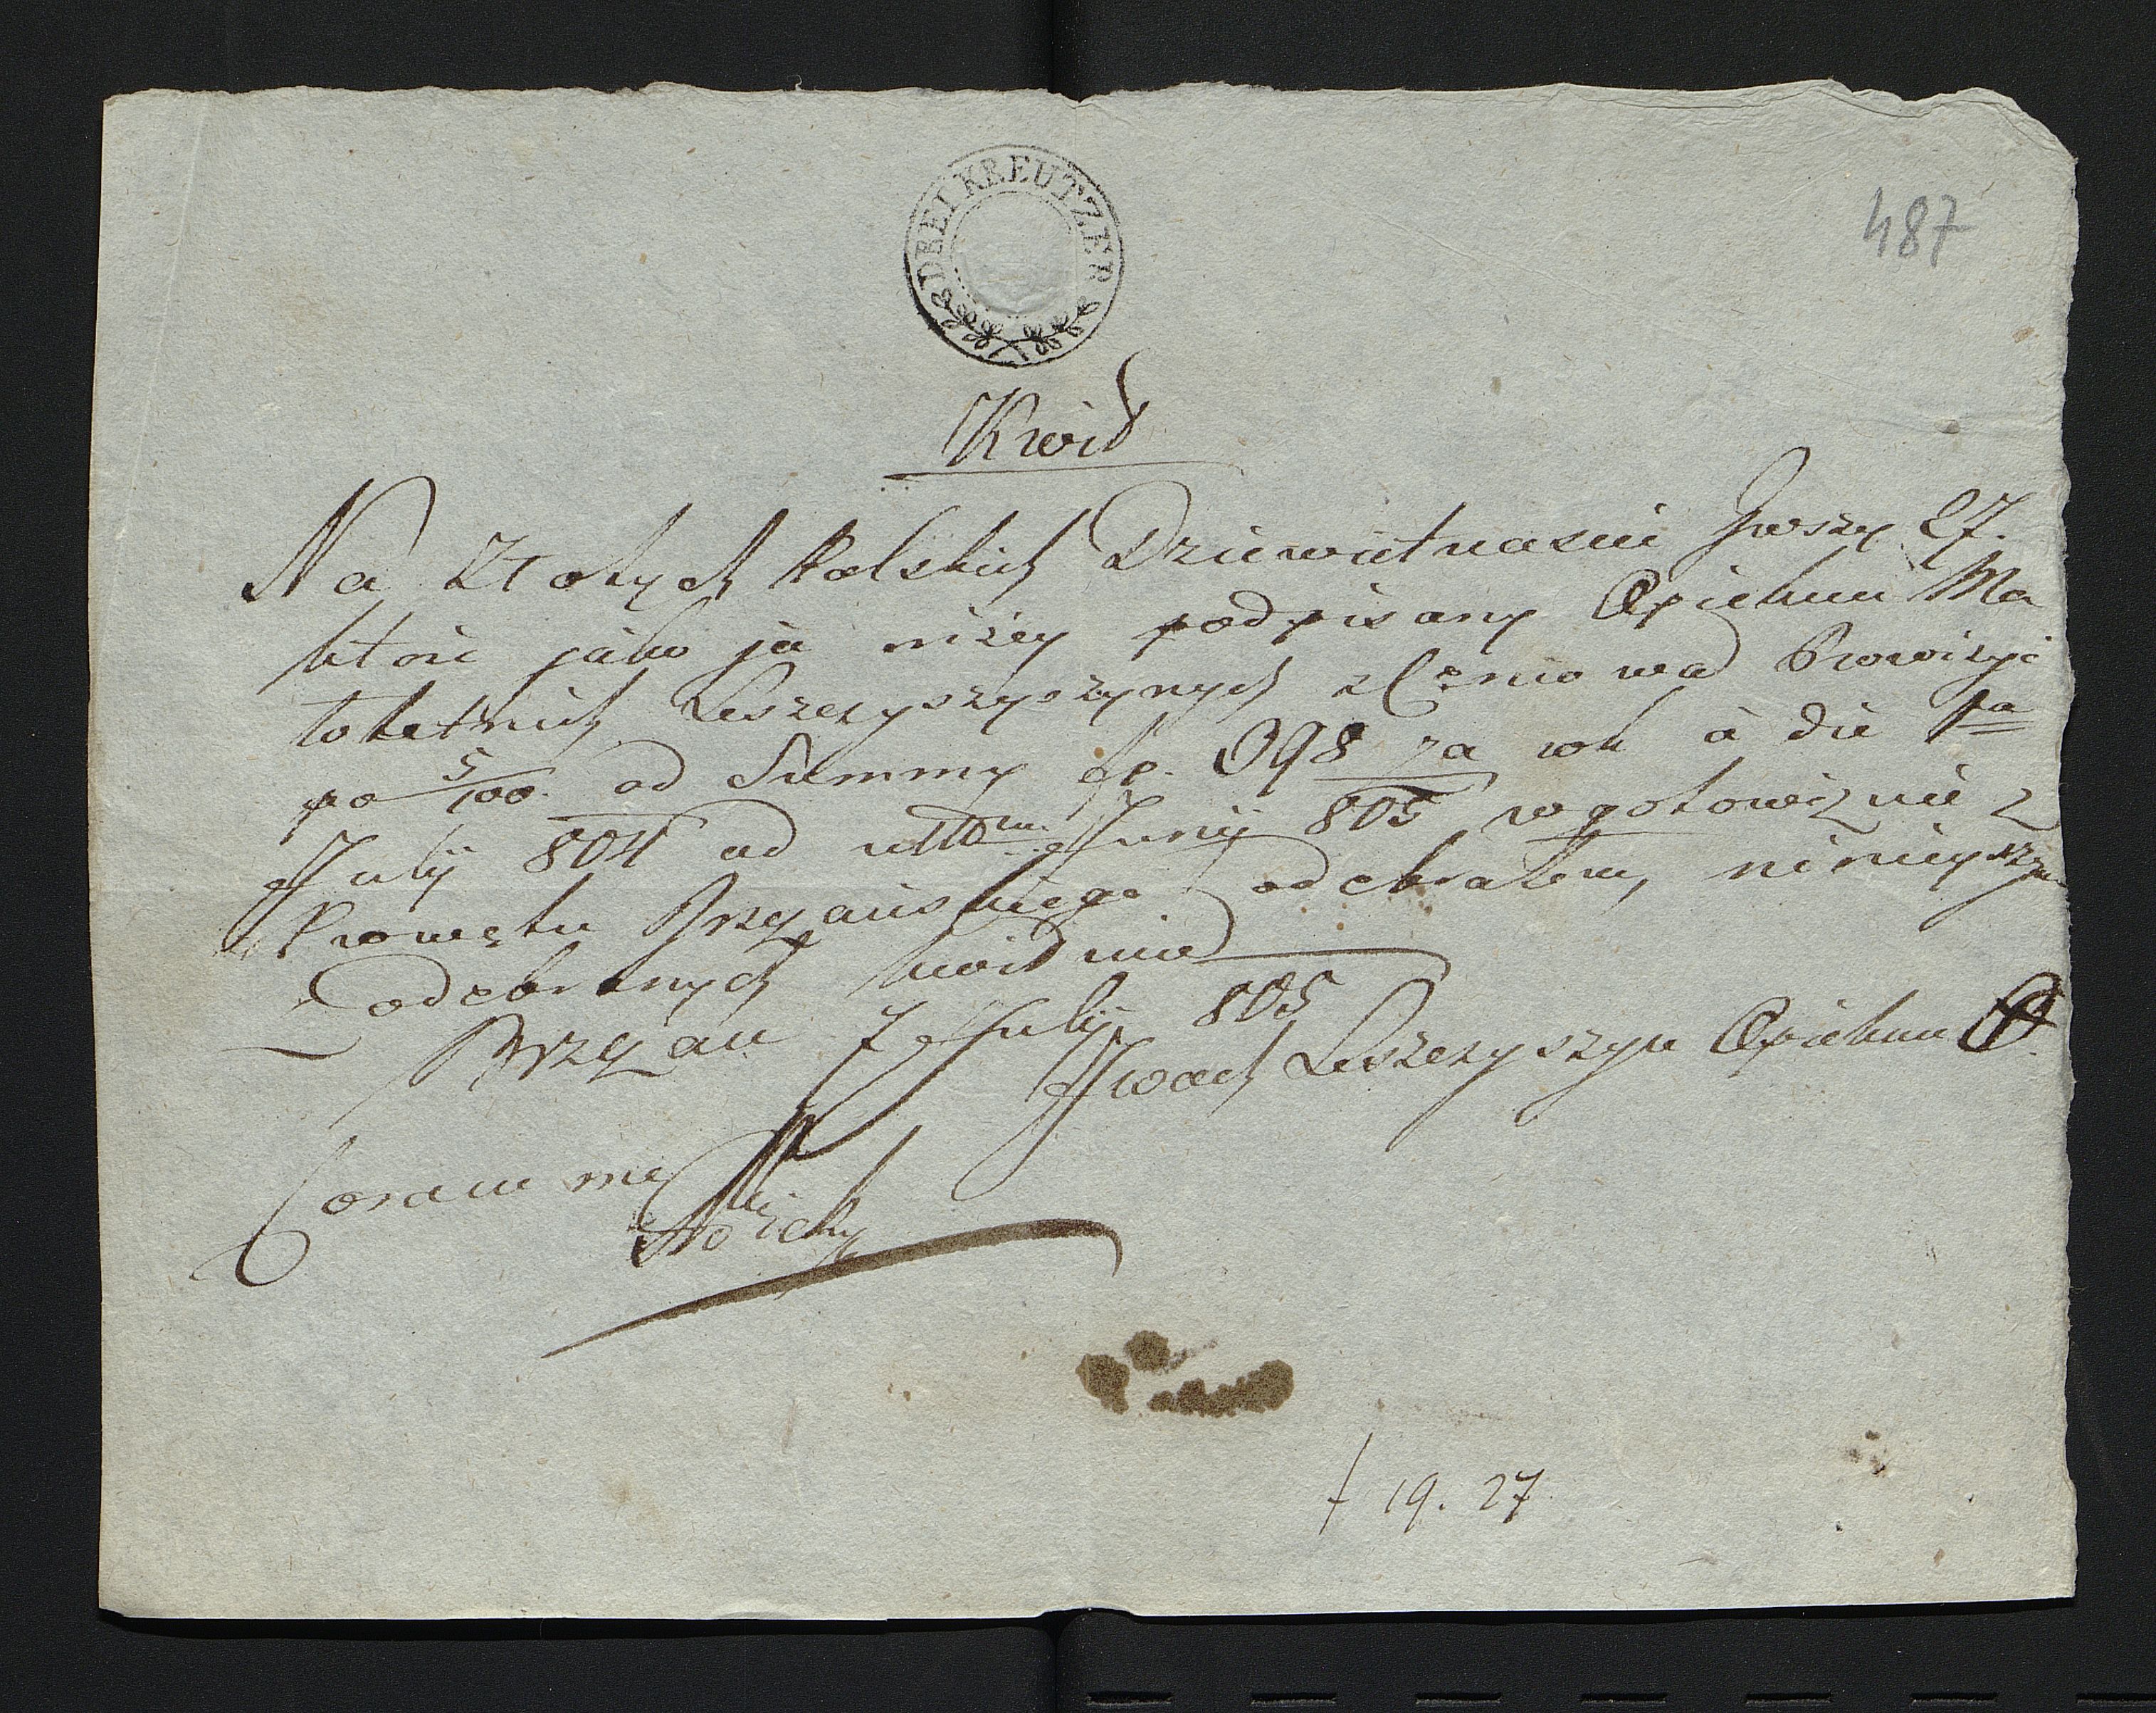 DREI KREUTZER
487
Kwit
Na Złotych Polskich Dziewiętnascie Groszy 27.
które jako ja niżey podpisany Opiekun Ma
łoletnich Leszczyszynych Prowizyi
po 5/100. od Summy fp. 398 za rok à die 1a
July 804 ad ultim Juny 805 w gotowiznie z
Prowentu Brzezanskiego odebrałem, ninieyszym
z odebranych kwituie
Brzezan 7 July 805
Iwach Leszczyszyn Opiekun
Coram me
f 19. 27